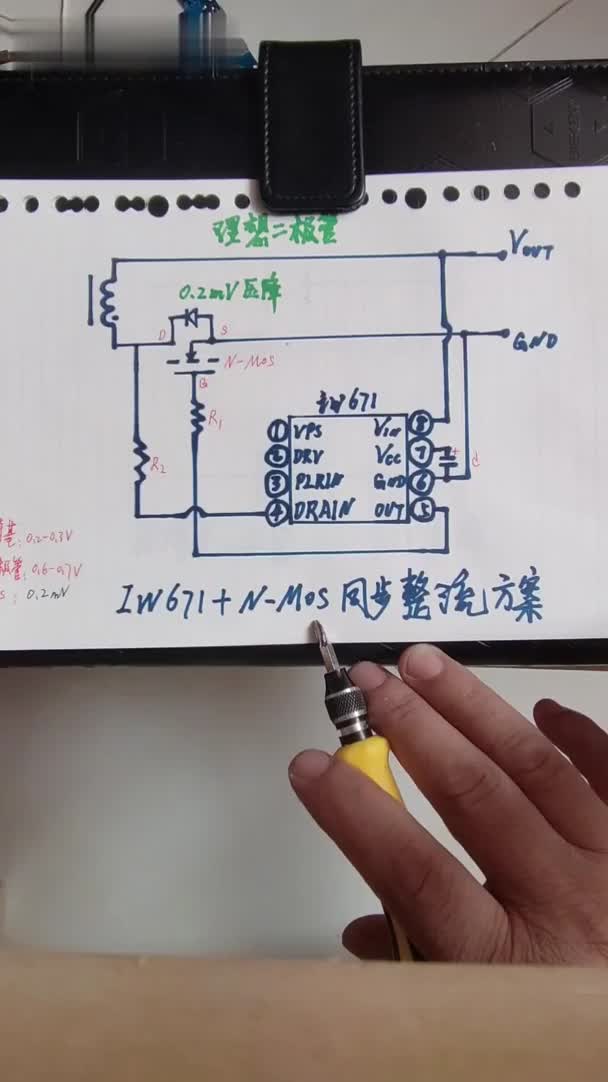 理想二极管
VOUT
0.2mV压降
D
S
GND
N-MOS
G
R1
R2
IW671
① VPS
② DRV
③ PLRIN
④ DRAIN
VIN ⑧
VCC ⑦
GND ⑥
OUT ⑤
+
C
基: 0.2-0.3V
极管: 0.6-0.7V
S: 0.2mV
IW671+N-MOS同步整流方案